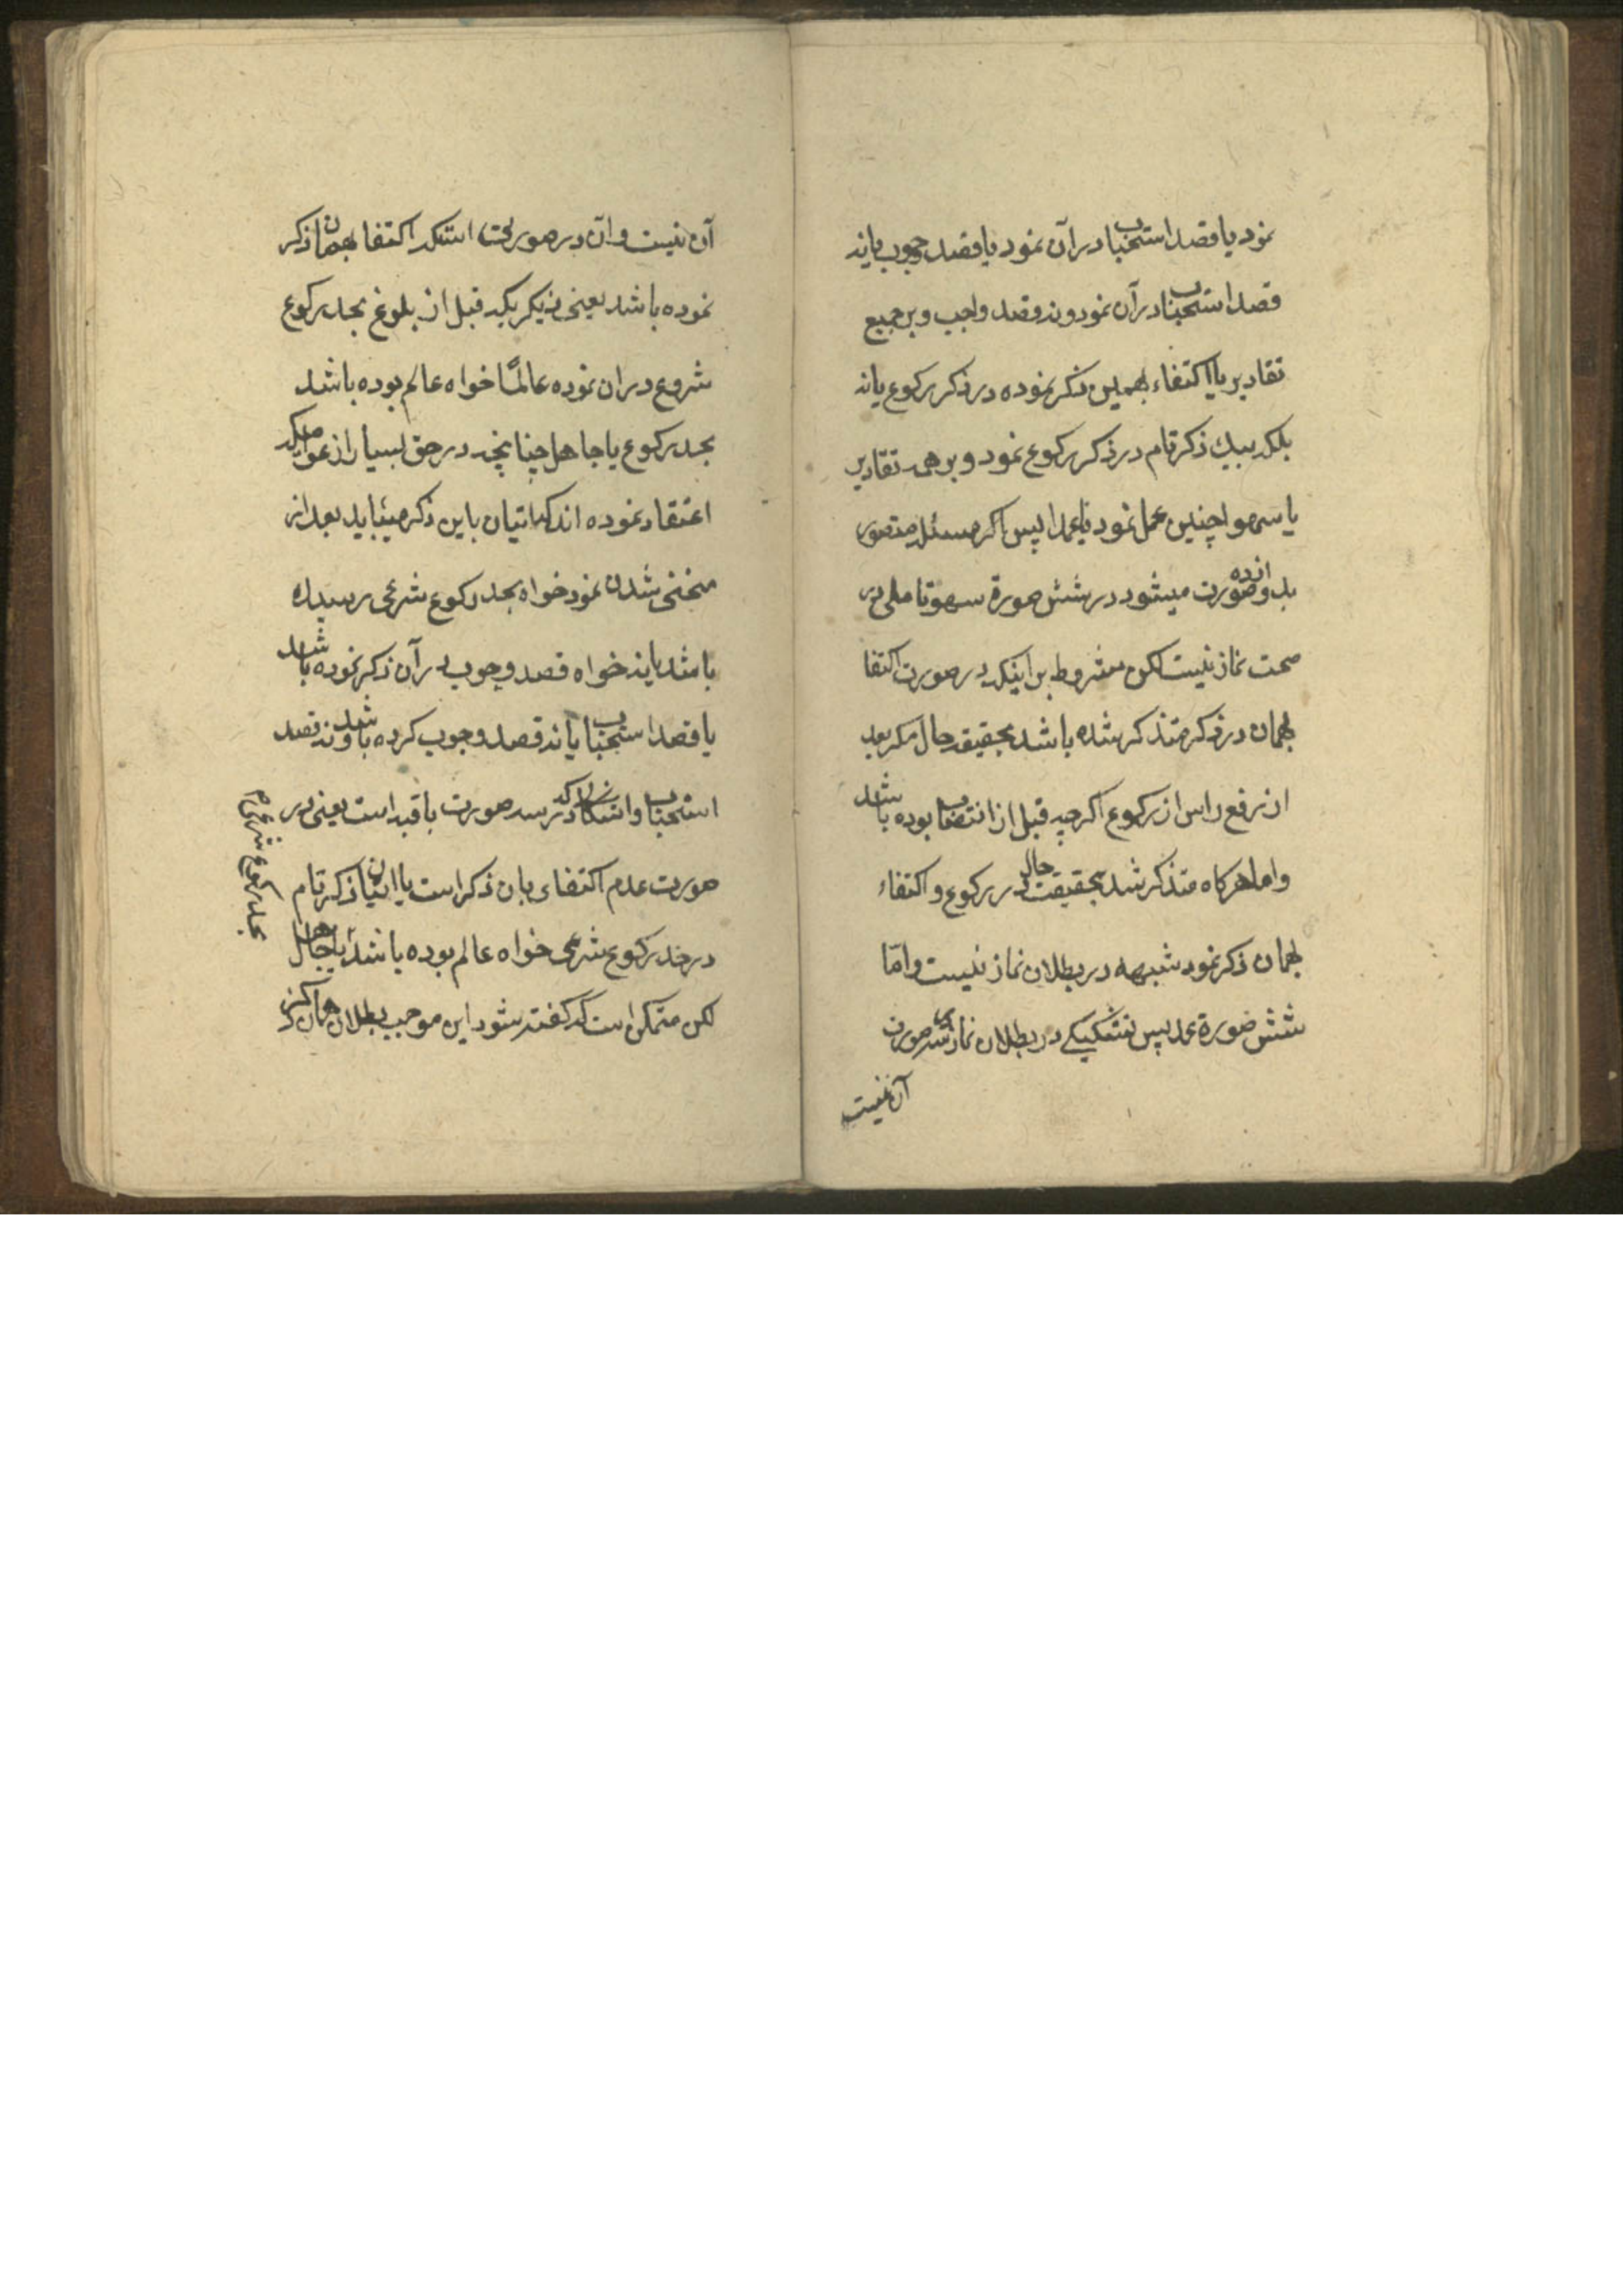 نمود یا قصد استحباب در آن نمود یا قصد وجوب یا نه
قصد استحباب در آن نمود و نه قصد واجب و بر جمیع
تقادیر یا اکتفاء بهمین ذکر نموده در ذکر رکوع یا نه
بلکه بیک ذکر تام در ذکر رکوع نمود و بر همه تقادیر
یا سهوا چنین عمل نمود یا عمدا پس اگر مسئله متصور
بدوازده صورت میشود در شش صورة سهو تاملی در
صحت نماز نیست لکن مشروط بر اینکه در صورت اکتفا
بهمان در ذکر متذکر شده باشد بحقیقه حال مگر بعد
از رفع راس از رکوع اگرچه قبل از انتصاب بوده باشد
و اما هرکاه متذکر شد بحقیقت حال در رکوع و اکتفاء
بهمان ذکر نمود شبهه در بطلان نماز نیست و امّا
شش صورة عمد پس تشکیکی در بطلان نماز در سه صورت
آن نیست
آن نیست و آن در صورتی استکه اکتفا بهمان ذکر
نموده باشد یعنی ذیکریکه قبل از بلوغ بحد رکوع
شروع در ان نموده عالمًا خواه عالم بوده باشد
بحد رکوع یا جاهل چنانچه در حق بسیار از عوام که
اعتقاد نموده اند که اتیان باین ذکر میباید بعد از
منحنی شدن نمود خواه بحد رکوع شرعی رسیده
باشد یا نه خواه قصد وجوب در آن ذکر نموده باشد
یا قصد استحباب یا نه قصد وجوب کرده باشد و نه قصد
استحباب و اشکالیکه در سه صورت باقیه است یعنی در
صورت عدم اکتفای بان ذکر است یا اتیان ذکر تام
در حد رکوع شرعی خواه عالم بوده باشد یا جاهل
بحد رکوع شرعی
لکن متمکن است که گفته شود این موجب بطلان همان